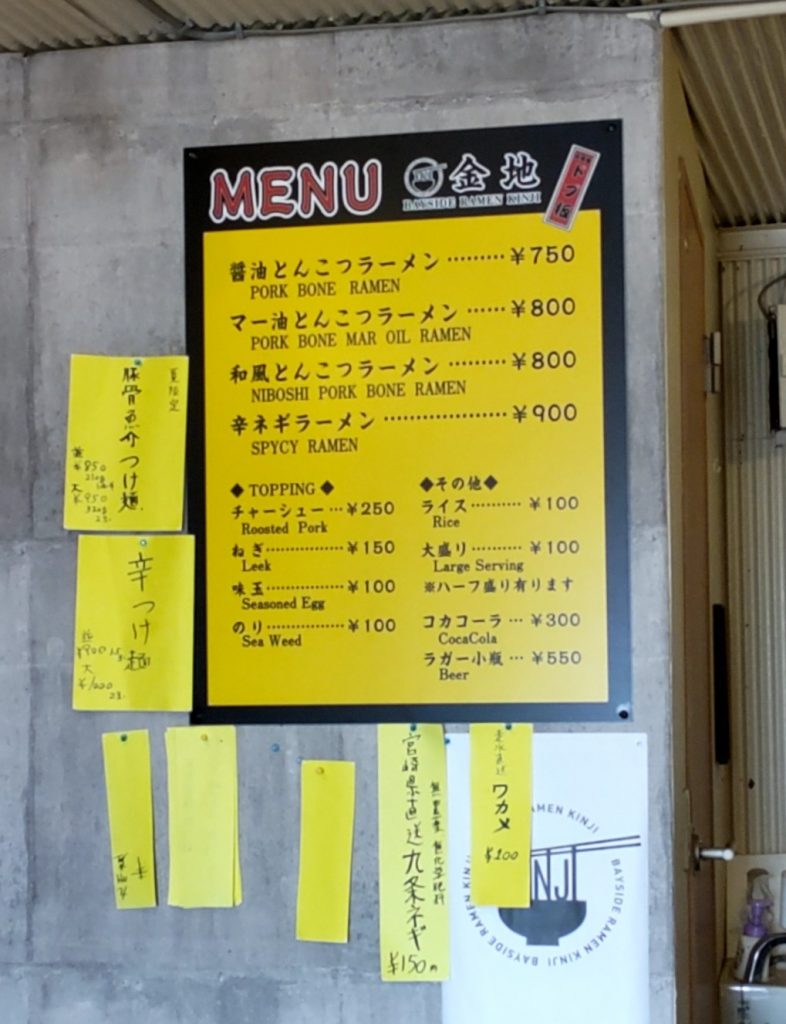 MENU
金地
BAYSIDE RAMEN KINJI
醤油とんこつラーメン………¥750
PORK BONE RAMEN
マー油とんこつラーメン……¥800
PORK BONE MAR OIL RAMEN
和風とんこつラーメン………¥800
NIBOSHI PORK BONE RAMEN
辛ネギラーメン………………¥900
SPYCY RAMEN
◆ TOPPING ◆
チャーシュー…¥250
Roosted Pork
ねぎ……………¥150
Leek
味玉……………¥100
Seasoned Egg
のり……………¥100
Sea Weed
◆その他◆
ライス………¥100
Rice
大盛り………¥100
Large Serving
※ハーフ盛り有ります
コカコーラ…¥300
CocaCola
ラガー小瓶…¥550
Beer
夏限定
豚骨魚介つけ麺
並
¥850
大
¥950
辛つけ麺
¥900
大
宮崎県直送九条ネギ
¥150円
走水直送
ワカメ
¥100
BAYSIDE RAMEN KINJI
BAYSIDE RAMEN KINJI